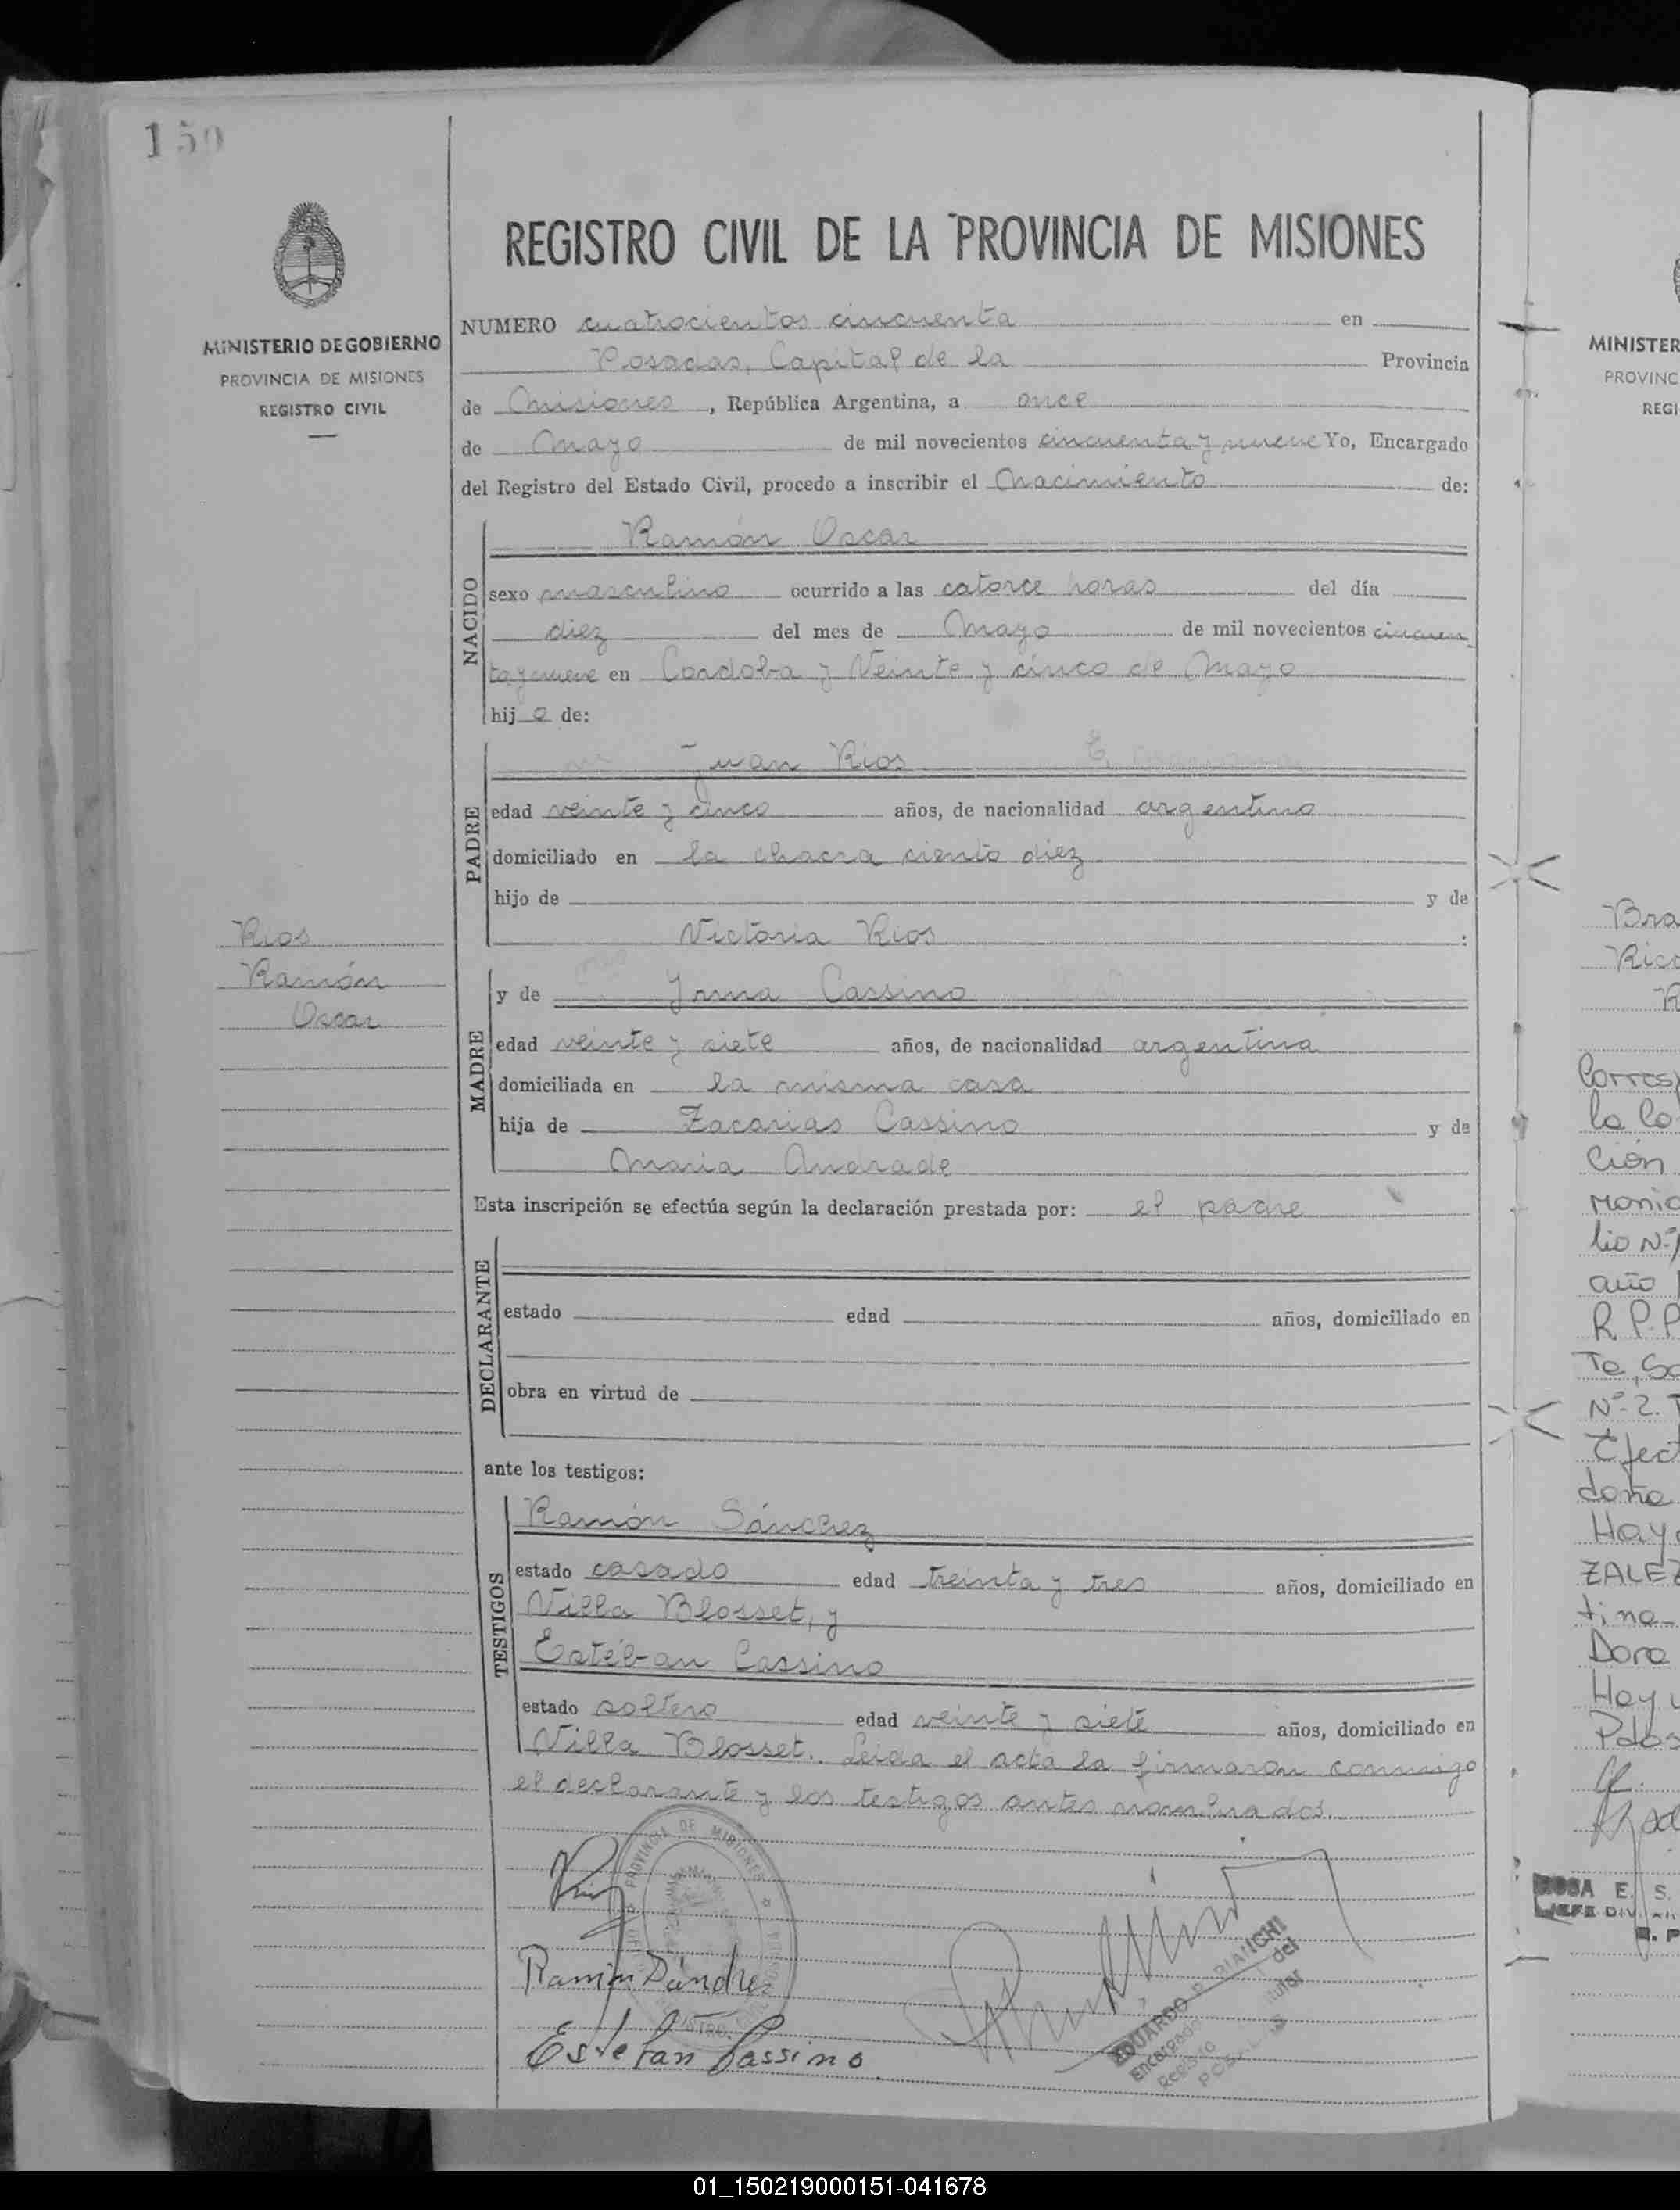 150
MINISTERIO DE GOBIERNO
PROVINCIA DE MISIONES
REGISTRO CIVIL
REGISTRO CIVIL DE LA PROVINCIA DE MISIONES
NUMERO cuatrocientos cincuenta en
Posadas, Capital de la Provincia
de Misiones, República Argentina, a once
de Mayo de mil novecientos cincuenta y nueve Yo, Encargado
del Registro del Estado Civil, procedo a inscribir el Nacimiento de:
NACIDO
Ramón Oscar
sexo masculino ocurrido a las catorce horas del día
diez del mes de Mayo de mil novecientos cincuen
ta y nueve en Cordoba y Veinte y cinco de Mayo
hijo de:
PADRE
Juan Rios
edad veinte y cinco años, de nacionalidad argentino
domiciliado en la chacra ciento diez
hijo de y de
Victoria Rios :
Rios
Ramón
Oscar
MADRE
y de Irma Cassino
edad veinte y siete años, de nacionalidad argentina
domiciliada en la misma casa
hija de Zacarias Cassino y de
Maria Andrade
Esta inscripción se efectúa según la declaración prestada por: el padre
DECLARANTE
estado edad años, domiciliado en
obra en virtud de
ante los testigos:
TESTIGOS
Ramón Sánchez
estado casado edad treinta y tres años, domiciliado en
Villa Blosset, y
Estéban Cassino
estado soltero edad veinte y siete años, domiciliado en
Villa Blosset. Leida el acta la firmaron conmigo
el declarante y los testigos antes nombrados.
PROVINCIA DE MISIONES
Ramón Sánchez
Estefan Cassino
EDUARDO P. BIANCHI
Encargado Titular del
Registro
MINISTER
PROVINC
REGI
Bra
Rica
R
Corres
la Co
ción
Monio
lio Nº
año
R.P.P
Te, Se
Nº 2.
Efect
doña
Hay
ZALEZ
tina
Dora
Hoy
Pdas
ROSA E. S.
JEFE DIV.
01_150219000151-041678